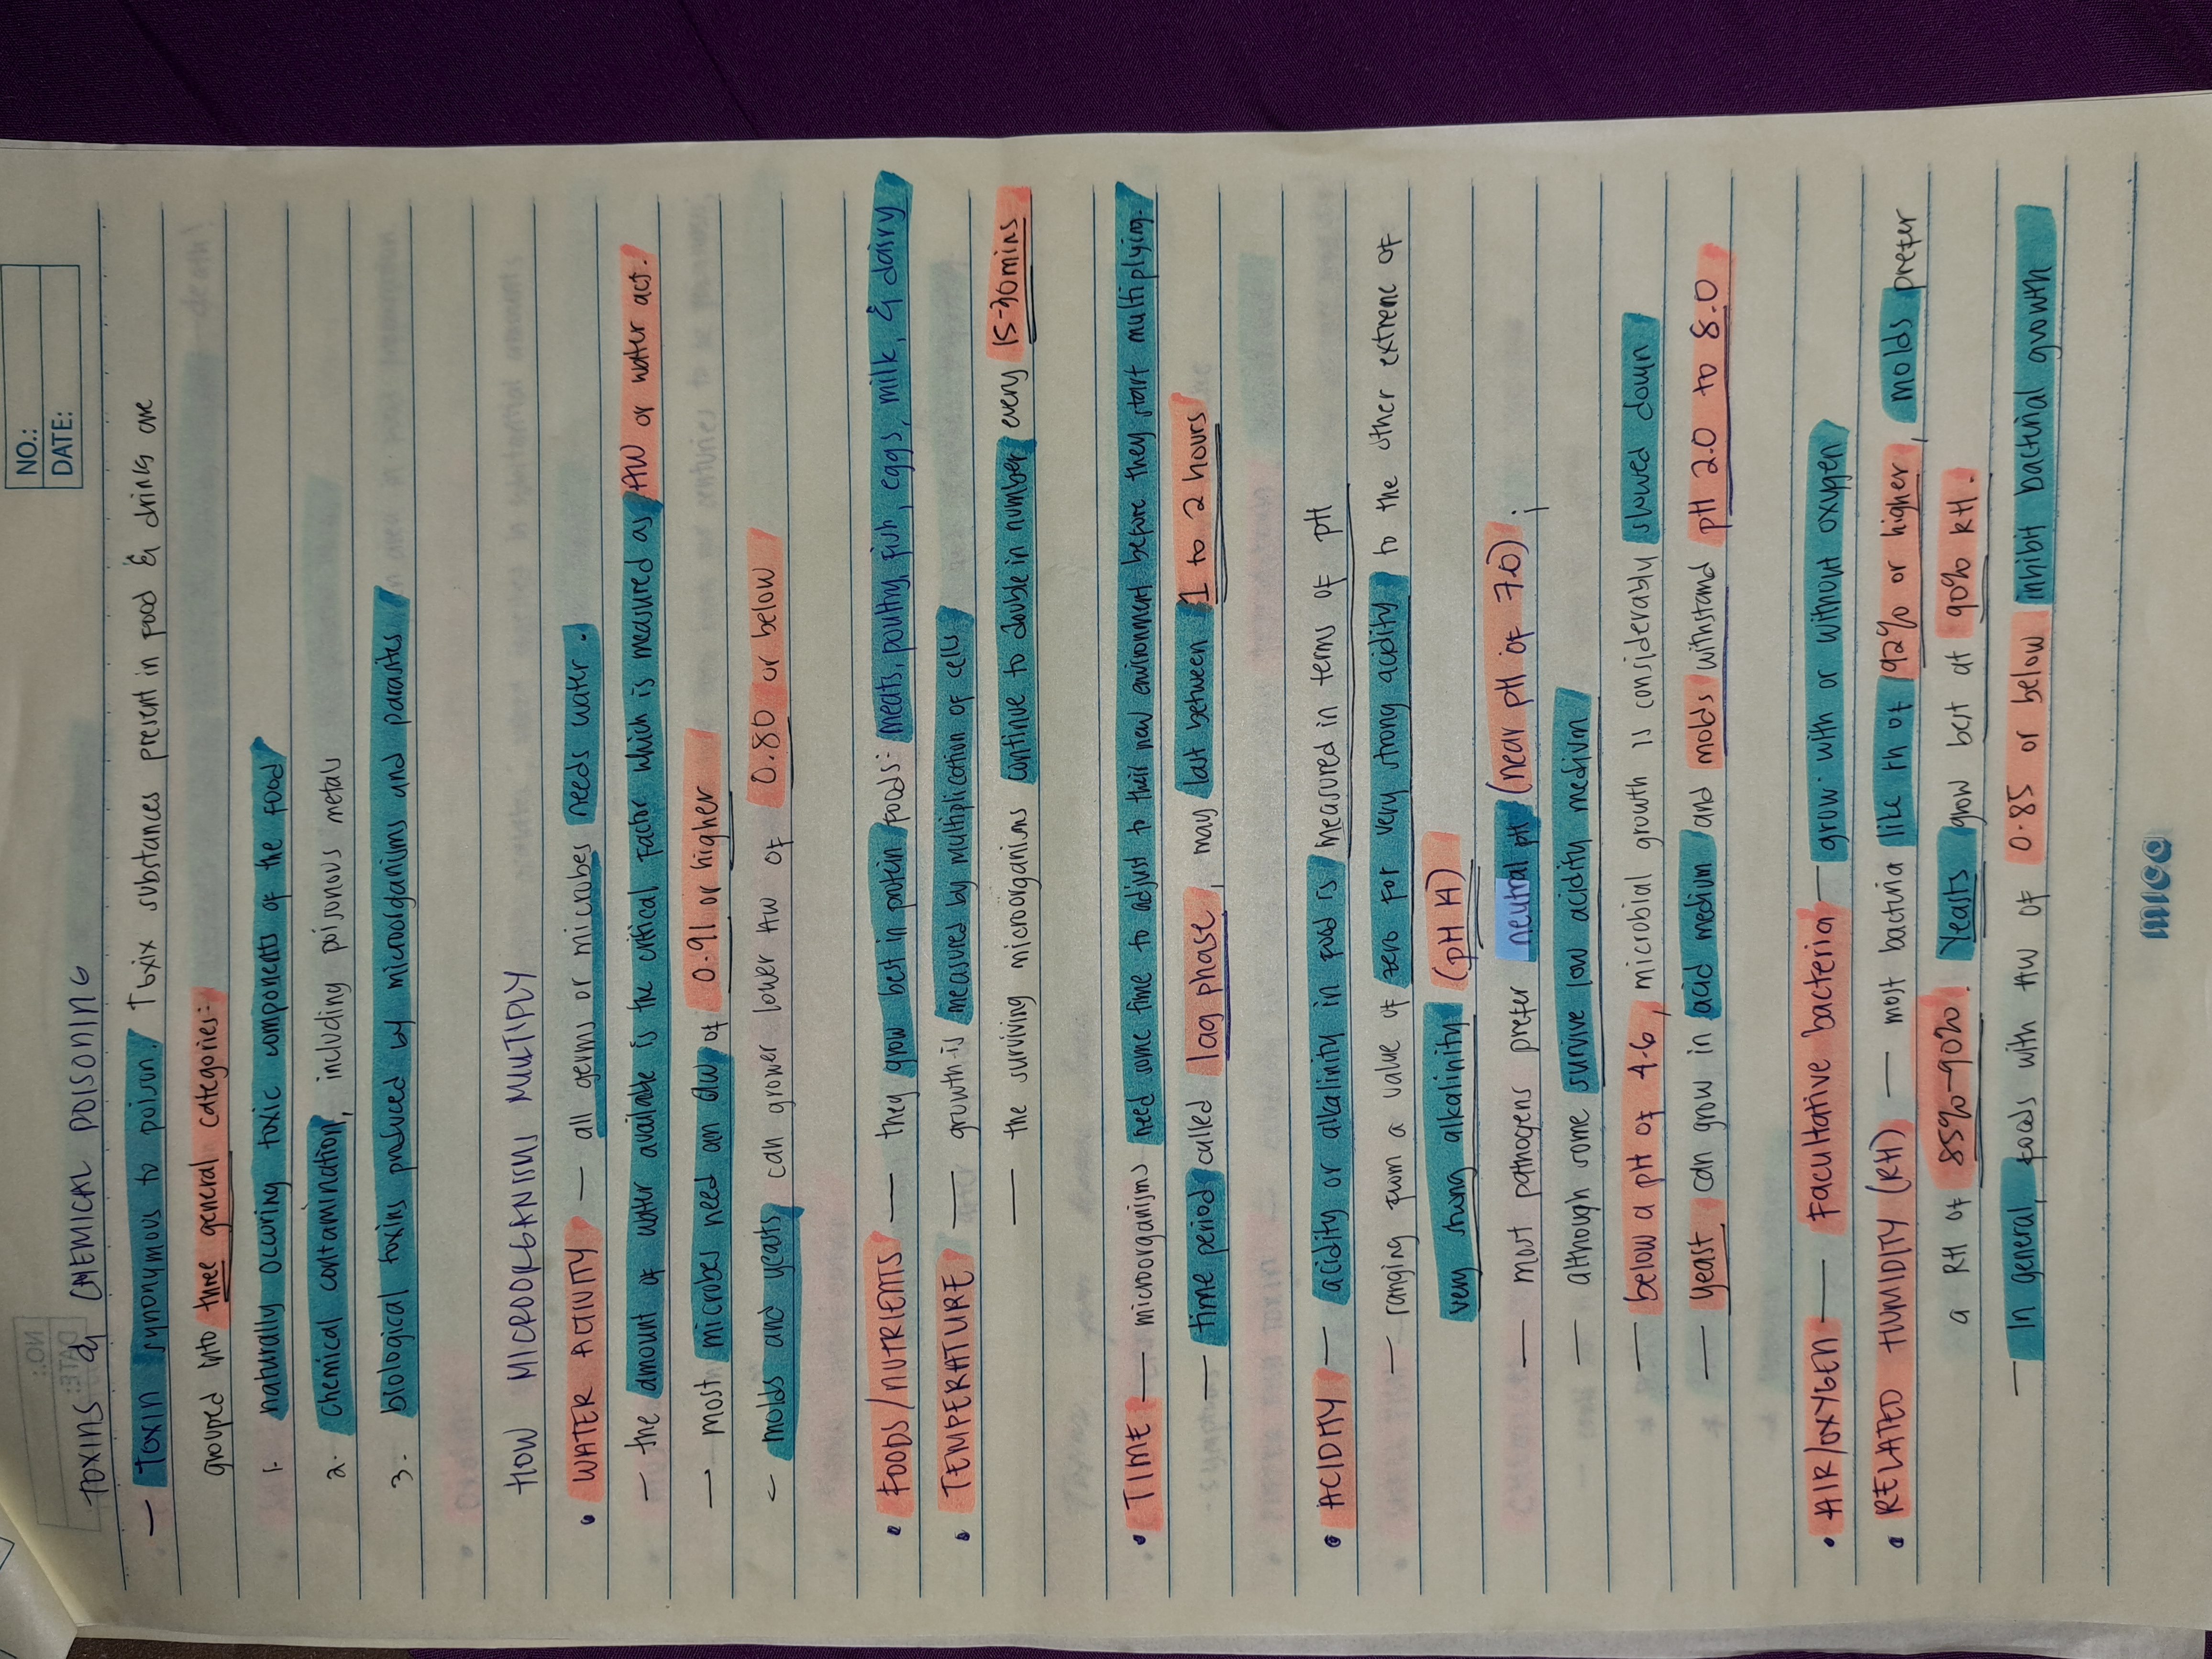 NO.:
DATE:
TOXINS & CHEMICAL POISONING
— Toxin synonymous to poison. Toxix substances present in food & drinks are
grouped into three general categories:
1. naturally occuring toxic components of the food
2. Chemical contamination, including poisonous metals
3. biological toxins produced by microorganisms and parasites
HOW MICROORGANISMS MULTIPLY
• WATER ACTIVITY — all germs or microbes needs water.
— the amount of water available is the critical factor which is measured as AW or water act.
— most microbes need an aw of 0.91 or higher
— molds and yeasts can grower lower AW of 0.80 or below
• FOODS/NUTRIENTS — they grow best in protein foods: meats, poultry, fish, eggs, milk, & dairy
• TEMPERATURE — growth is measured by multiplication of cells
— the surviving microorganisms continue to double in number every 15-30mins
• TIME — microorganisms need some time to adjust to their new environment before they start multiplying.
— time period called lag phase, may last between 1 to 2 hours
• ACIDITY — acidity or alkalinity in food is measured in terms of pH
— ranging from a value of zero for very strong acidity to the other extreme of
very strong alkalinity (pH 14)
— most pathogens prefer neutral pH (near pH of 7.0);
— although some survive low acidity medium
— below a pH of 4.6, microbial growth is considerably slowed down
— yeast can grow in acid medium and molds withstand pH 2.0 to 8.0
• AIR/OXYGEN — Facultative bacteria — grow with or without oxygen
• RELATED HUMIDITY (RH) — most bacteria like rh of 92% or higher, molds prefer
a RH of 85%-90%. Yeasts grow best at 90% RH.
— In general, foods with AW of 0.85 or below inhibit bacterial growth
mica